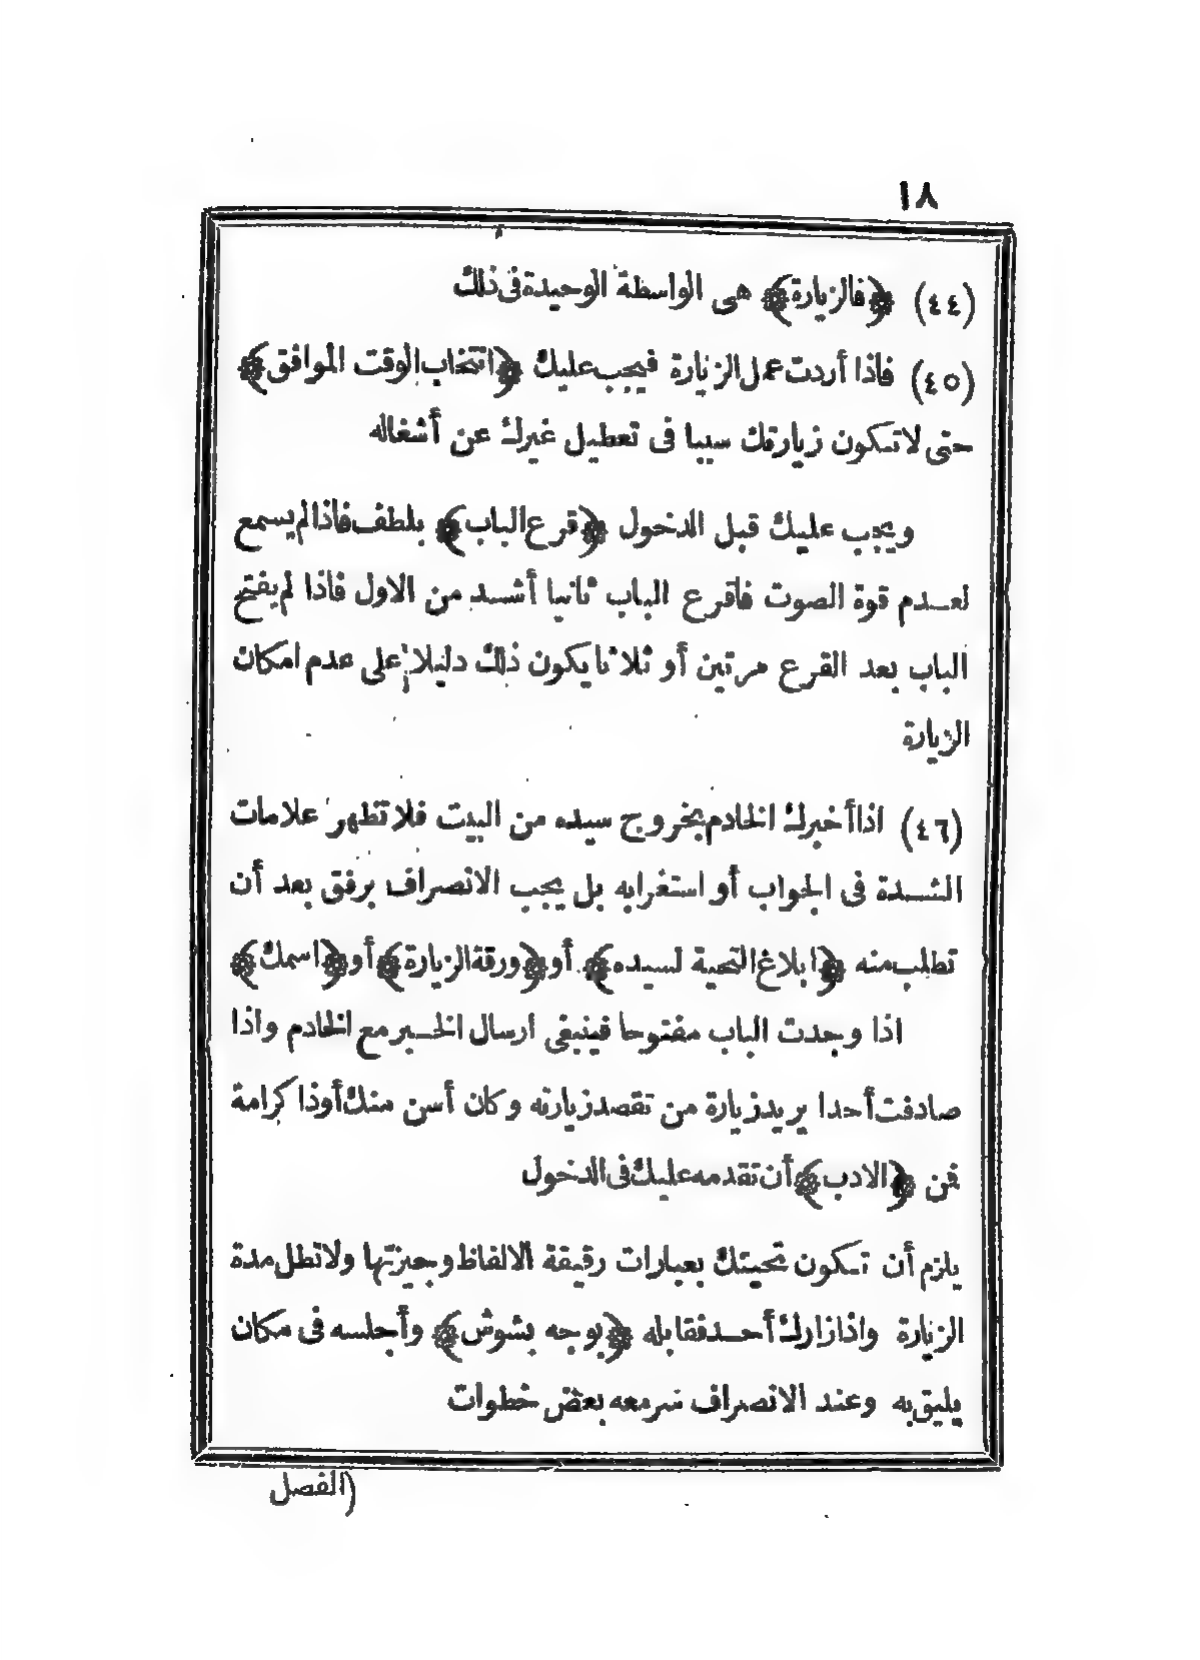 ١٨
(٤٤) ﴿فالزيارة﴾ هى الواسطة الوحيدة فى ذلك
(٤٥) فاذا أردت عمل الزيارة فيجب عليك ﴿انتخاب الوقت الموافق﴾
حتى لا تكون زيارتك سببا فى تعطيل غيرك عن أشغاله
ويجب عليك قبل الدخول ﴿قرع الباب﴾ بلطف فاذا لم يسمع
لعدم قوة الصوت فاقرع الباب ثانيا أشد من الاول فاذا لم يفتح
الباب بعد القرع مرتين أو ثلاثا يكون ذلك دليلا على عدم امكان
الزيارة
(٤٦) اذا أخبرك الخادم بخروج سيده من البيت فلا تظهر علامات
الشدة فى الجواب أو استغرابه بل يجب الانصراف برفق بعد أن
تطلب منه ﴿ابلاغ التحية لسيده﴾ أو ﴿ورقة الزيارة﴾ أو ﴿اسمك﴾
اذا وجدت الباب مفتوحا فينبغى ارسال الخبر مع الخادم واذا
صادفت أحدا يريد زيارة من تقصد زيارته وكان أسن منك أوذا كرامة
فمن ﴿الادب﴾ أن تقدمه عليك فى الدخول
يلزم أن تكون تحيتك بعبارات رقيقة الالفاظ وجيزتها ولا تطل مدة
الزيارة واذا زارك أحد فقابله ﴿بوجه بشوش﴾ وأجلسه فى مكان
يليق به وعند الانصراف سر معه بعض خطوات
(الفصل